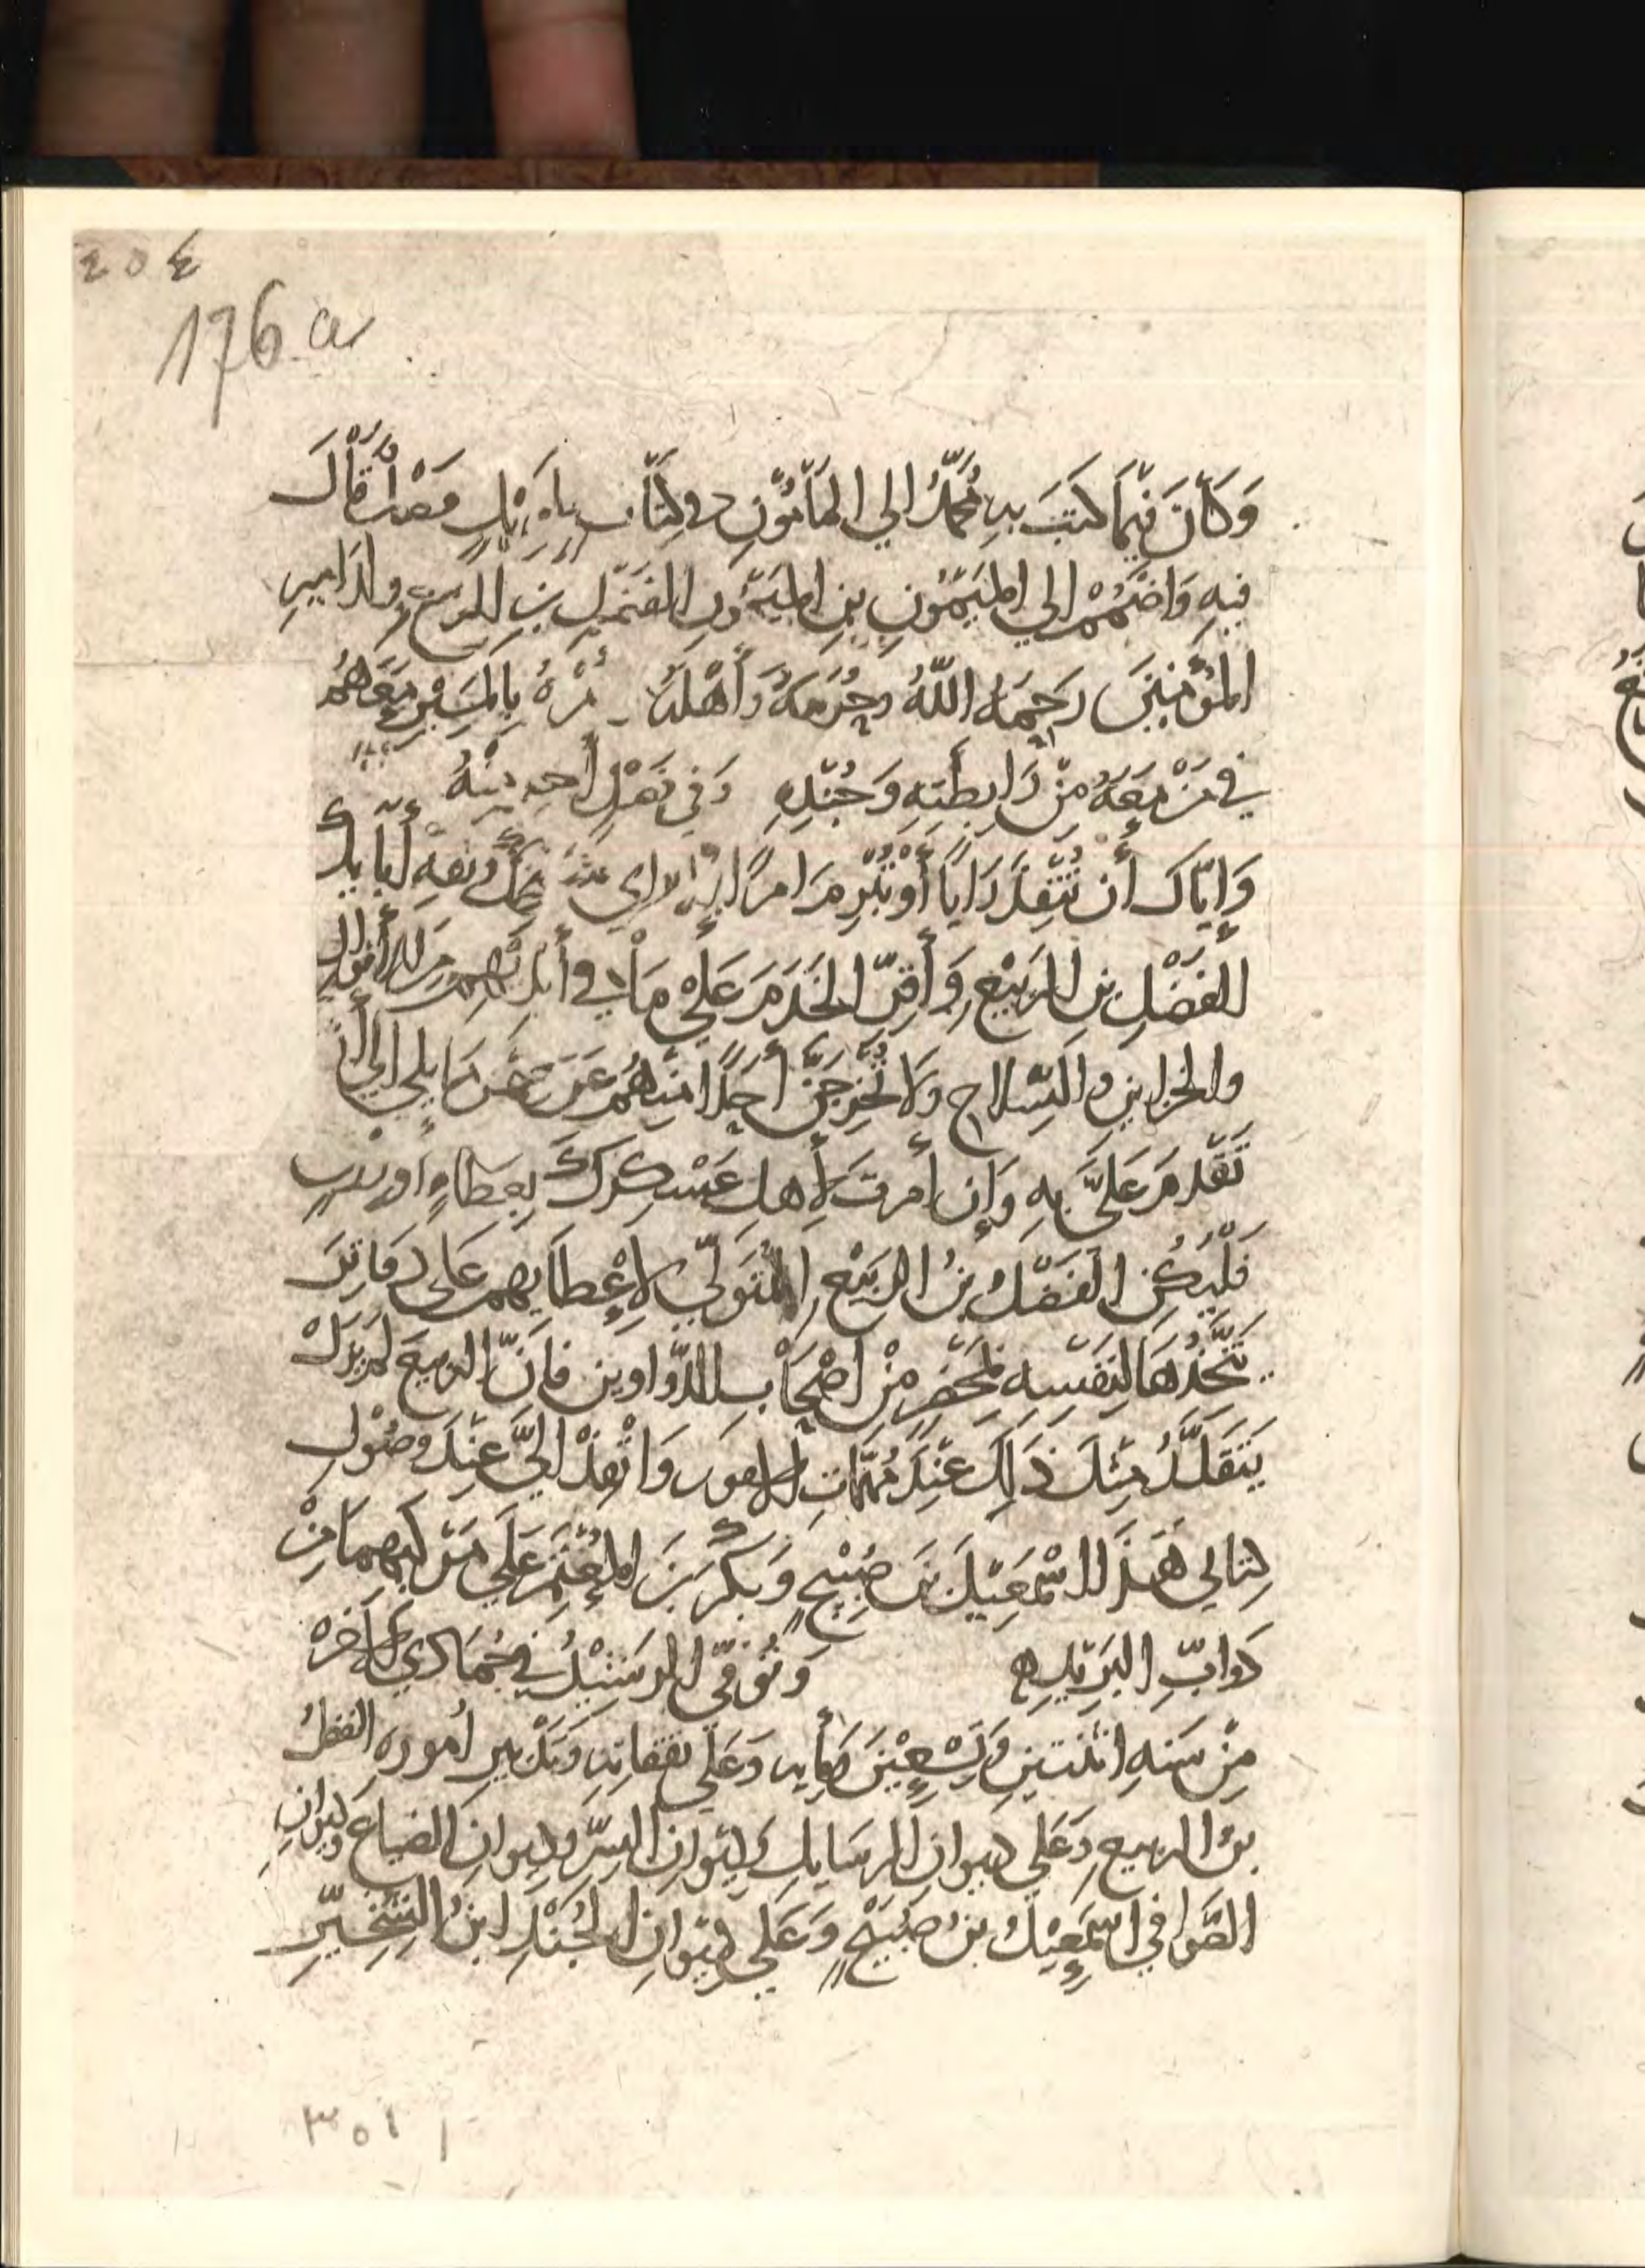 ٢٥٤
176 a
وَكَانَ فِيمَا كَتَبَ بِهِ مُحَمَّدُ الي المَأْمُونِ في كِتَابٍ قَالَ
فِيهِ وَاضْمُمْ الي المَيْمُونِ بنِ المَيْمُونِ الفَضْلِ بنِ الرّبيعِ ولدَ امير
المُؤمِنِينَ رَحِمَهُ اللّهُ وحُرَمَهُ وَأَهْلَهُ وَمُرْهُ بِالمَسِيْرِ مَعَهُمْ
في مَنْ مَعَهُ مِنْ رَابِطَتِهِ وَجُنْدِهِ
وَإِيّاكَ أَن تُنْفِذَ رَايًا أَوْ تُبْرِمَ امرًا الّا براي
الفَضْلِ بنِ الرّبِيْعِ وَأَقِرّ الخَدَمَ عَلَي مَا في أَيْدِيْهِم مِن الأَموال
والخزاين والسِّلاح ولَا تُخْرِجَنَّ أَحَدًا مِنْهُم عَن ضمن مَا يلي الي أَن
تَقْدمَ عَلَيَّ بِهِ وَإِن أَمرتَ لأَهلِ عَسْكرِكَ بعَطَاءٍ او
فَلْيَكُنِ الفَضْلُ بنُ الرّبِيْعِ المُتَولِّي لإِعْطَايِهم عَلى دفَاتِرَ
يَتَّخِذُهَا لِنَفْسِه بمَحْضَرٍ مِنْ أَصْحَابِ الدّواوين فاِنَّ الربيعَ لم يَزَلْ
يَتَقَلَّدُ مِثْلَ ذَلِكَ عِنْدَ مُهمَّاتِ الامور وَانْفِذْ اِلَيَّ عِنْدَ وصُولِ
كِتَابي هَذَا اسْمَعِيْلَ بنَ صُبَيْحٍ وَبكْرَ بنَ المُعْتَمِرِ عَلَي مَرْكَبَيْهِمَا مِنْ
دَوابِّ البَرِيْدِ وَتُوُفِّي الرَشِيْدُ في جُمَادي الآخره
مِنْ سَنهِ اثْنَتينِ وَتِسْعِيْنَ وَمايه وَعَلَي نَفَقَاتِهِ وَتَدْبيرِ أُمورِهِ الفَضْلُ
بنُ الربيعِ وَعَلَي دِيوانِ الرسَايلِ وَدِيوانِ السِّرّ وديوانِ الضياعِ وديوانِ
الصَّوافي اسْمَعِيْلُ بنُ صُبَيْحٍ وَعَلَي دِيْوانِ الجُنْدِ ابنُ الشِّخِّيرِ